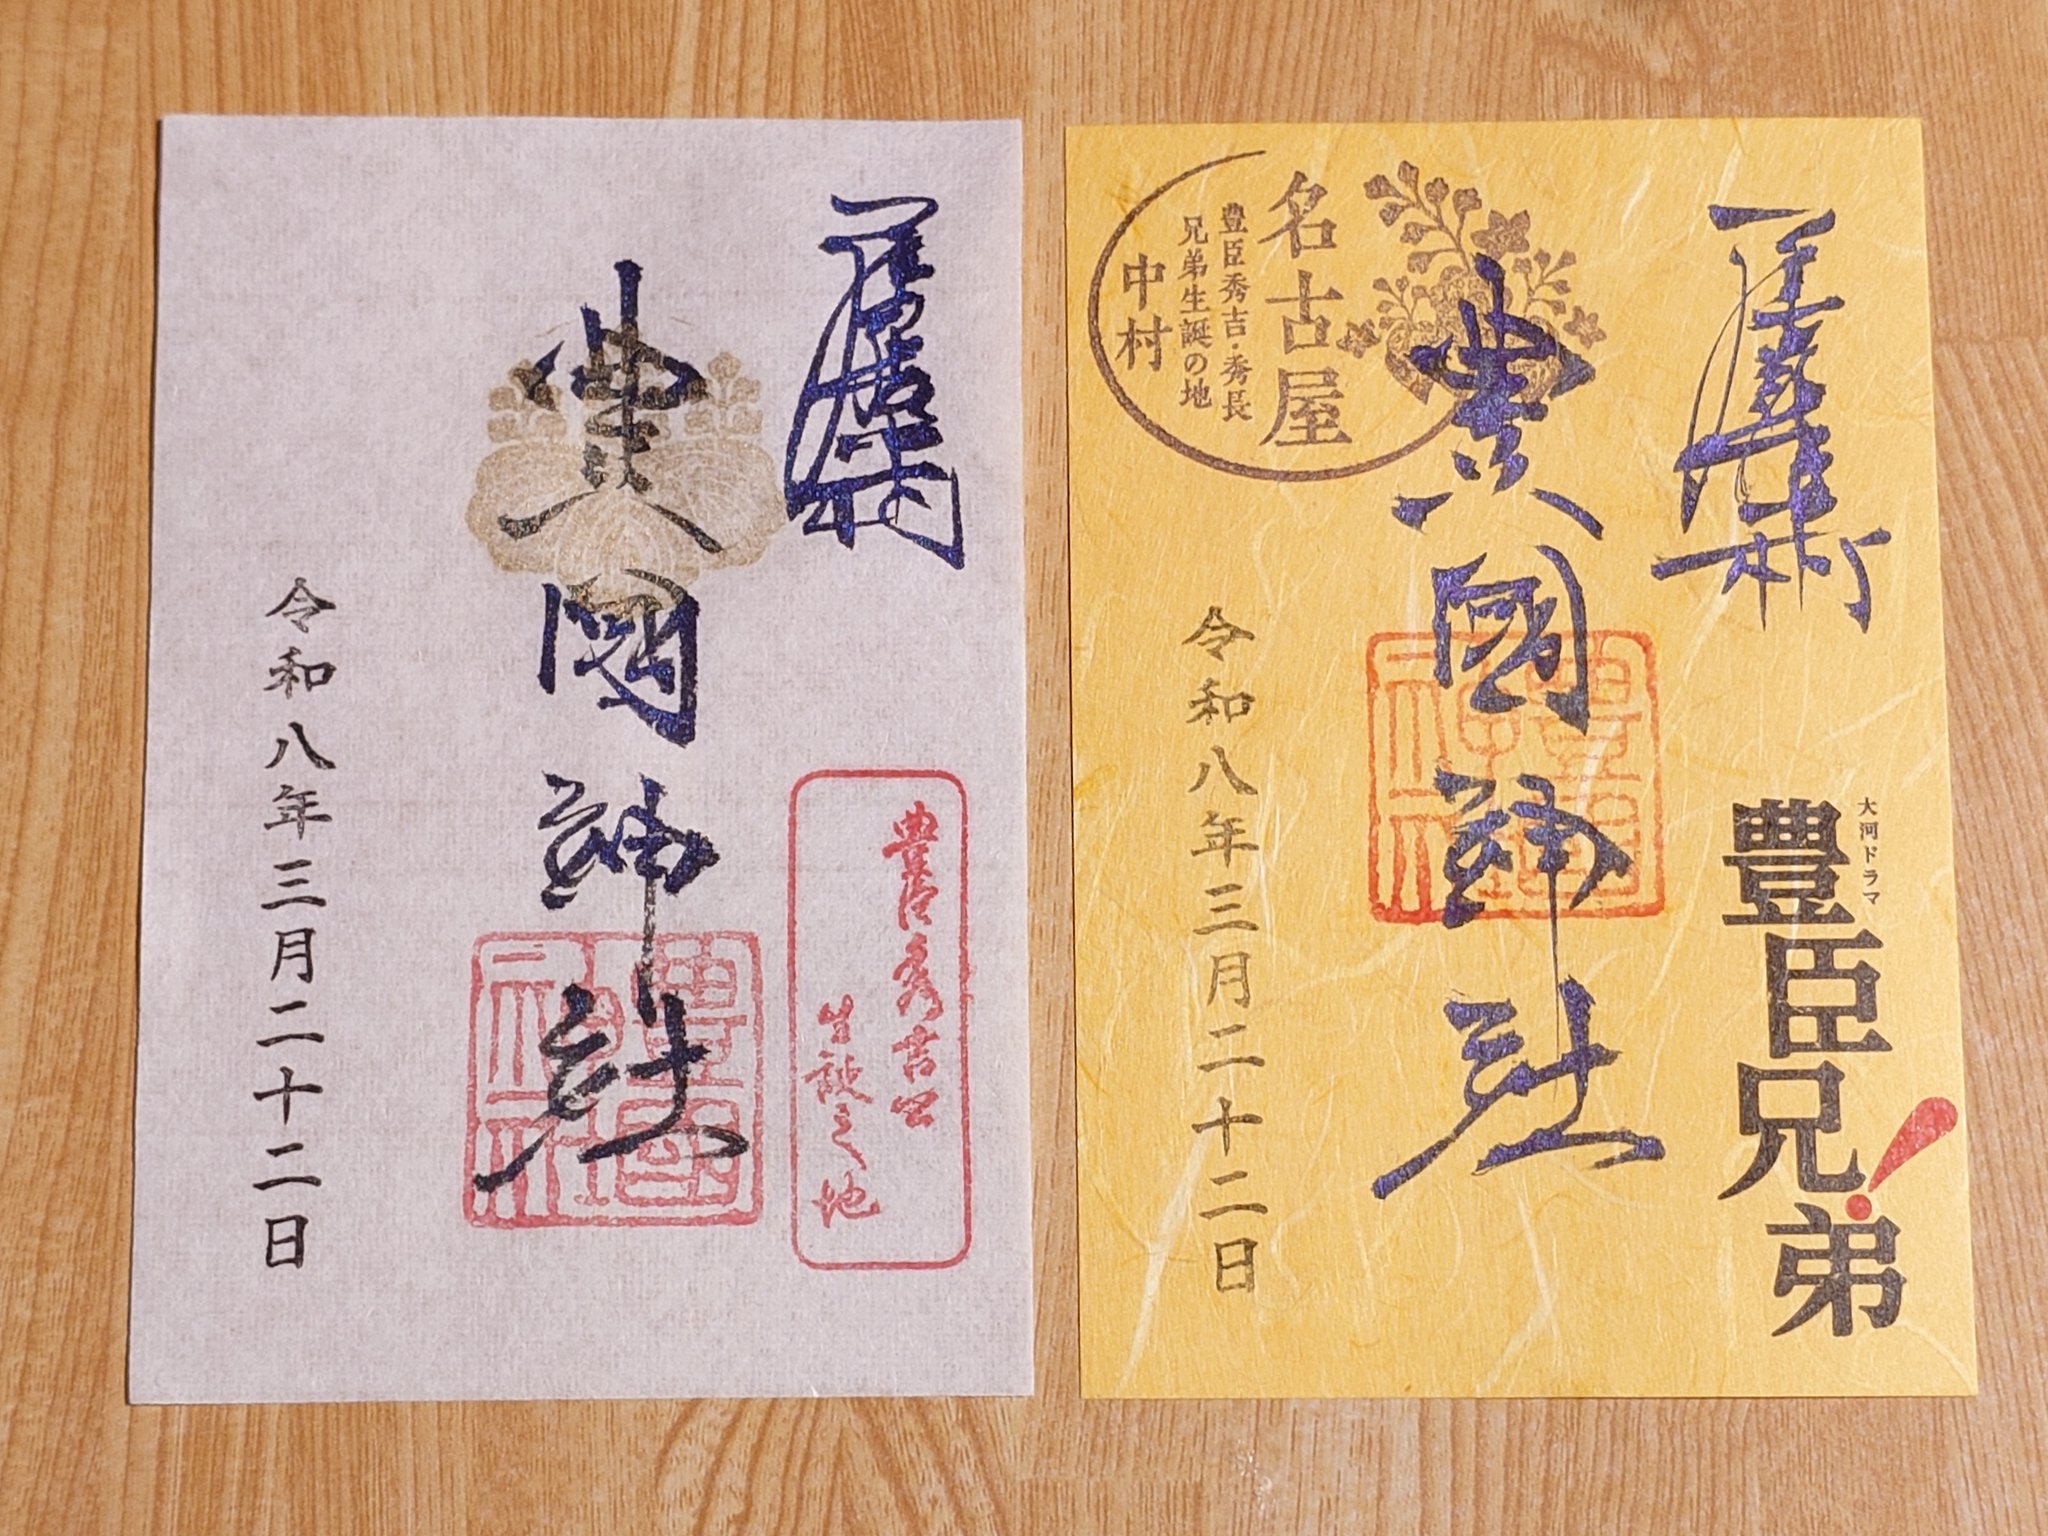 豊臣秀吉公
生誕之地
豊國神社
令和八年三月二十二日
大河ドラマ
豊臣兄弟!
豊國神社
名古屋
豊臣秀吉・秀長
兄弟生誕の地
中村
令和八年三月二十二日